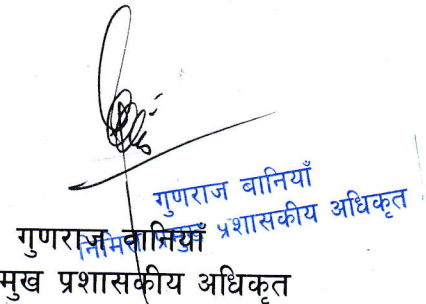 गुणराज बानियाँ
निमित्त प्रमुख प्रशासकीय अधिकृत
गुणराज बानियाँ
मुख प्रशासकीय अधिकृत